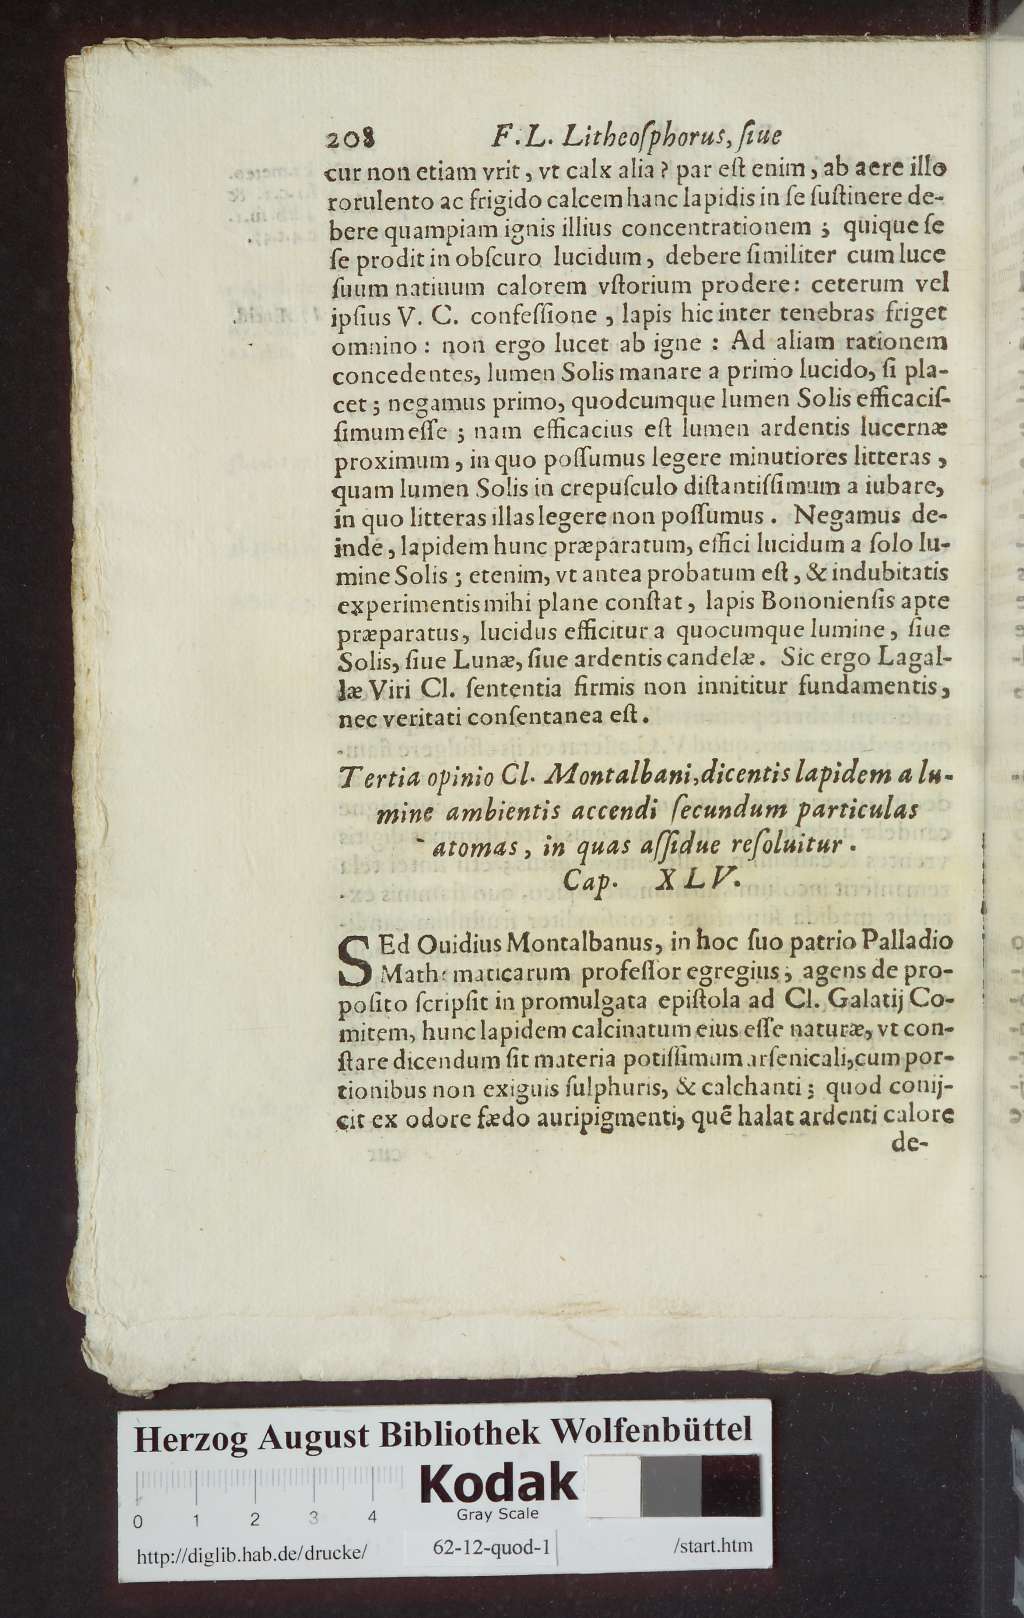 208 F. L. Litheoſphorus, ſiue
cur non etiam vrit, vt calx alia? par eſt enim, ab aere illo
rorulento ac frigido calcem hanc lapidis in ſe ſuſtinere de-
bere quampiam ignis illius concentrationem; quique ſe
ſe prodit in obſcuro lucidum, debere ſimiliter cum luce
ſuum natiuum calorem vſtorium prodere: ceterum vel
ipſius V. C. confeſſione, lapis hic inter tenebras friget
omnino: non ergo lucet ab igne: Ad aliam rationem
concedentes, lumen Solis manare a primo lucido, ſi pla-
cet; negamus primo, quodcumque lumen Solis efficaciſ-
ſimum eſſe; nam efficacius eſt lumen ardentis lucernæ
proximum, in quo poſſumus legere minutiores litteras,
quam lumen Solis in crepuſculo diſtantiſſimum a iubare,
in quo litteras illas legere non poſſumus. Negamus de-
inde, lapidem hunc præparatum, effici lucidum a ſolo lu-
mine Solis; etenim, vt antea probatum eſt, & indubitatis
experimentis mihi plane conſtat, lapis Bononienſis apte
præparatus, lucidus efficitur a quocumque lumine, ſiue
Solis, ſiue Lunæ, ſiue ardentis candelæ. Sic ergo Lagal-
læ Viri Cl. ſententia firmis non innititur fundamentis,
nec veritati conſentanea eſt.
Tertia opinio Cl. Montalbani, dicentis lapidem a lu-
mine ambientis accendi ſecundum particulas
atomas, in quas aſſidue reſoluitur.
Cap. XLV.
SEd Ouidius Montalbanus, in hoc ſuo patrio Palladio
Mathematicarum profeſſor egregius; agens de pro-
poſito ſcripſit in promulgata epiſtola ad Cl. Galatij Co-
mitem, hunc lapidem calcinatum eius eſſe naturæ, vt con-
ſtare dicendum ſit materia potiſſimum arſenicali, cum por-
tionibus non exiguis ſulphuris, & calchanti; quod conij-
cit ex odore fædo auripigmenti, quẽ halat ardenti calore
de-
Herzog August Bibliothek Wolfenbüttel
Kodak
Gray Scale
0 1 2 3 4
http://diglib.hab.de/drucke/ 62-12-quod-1 /start.htm